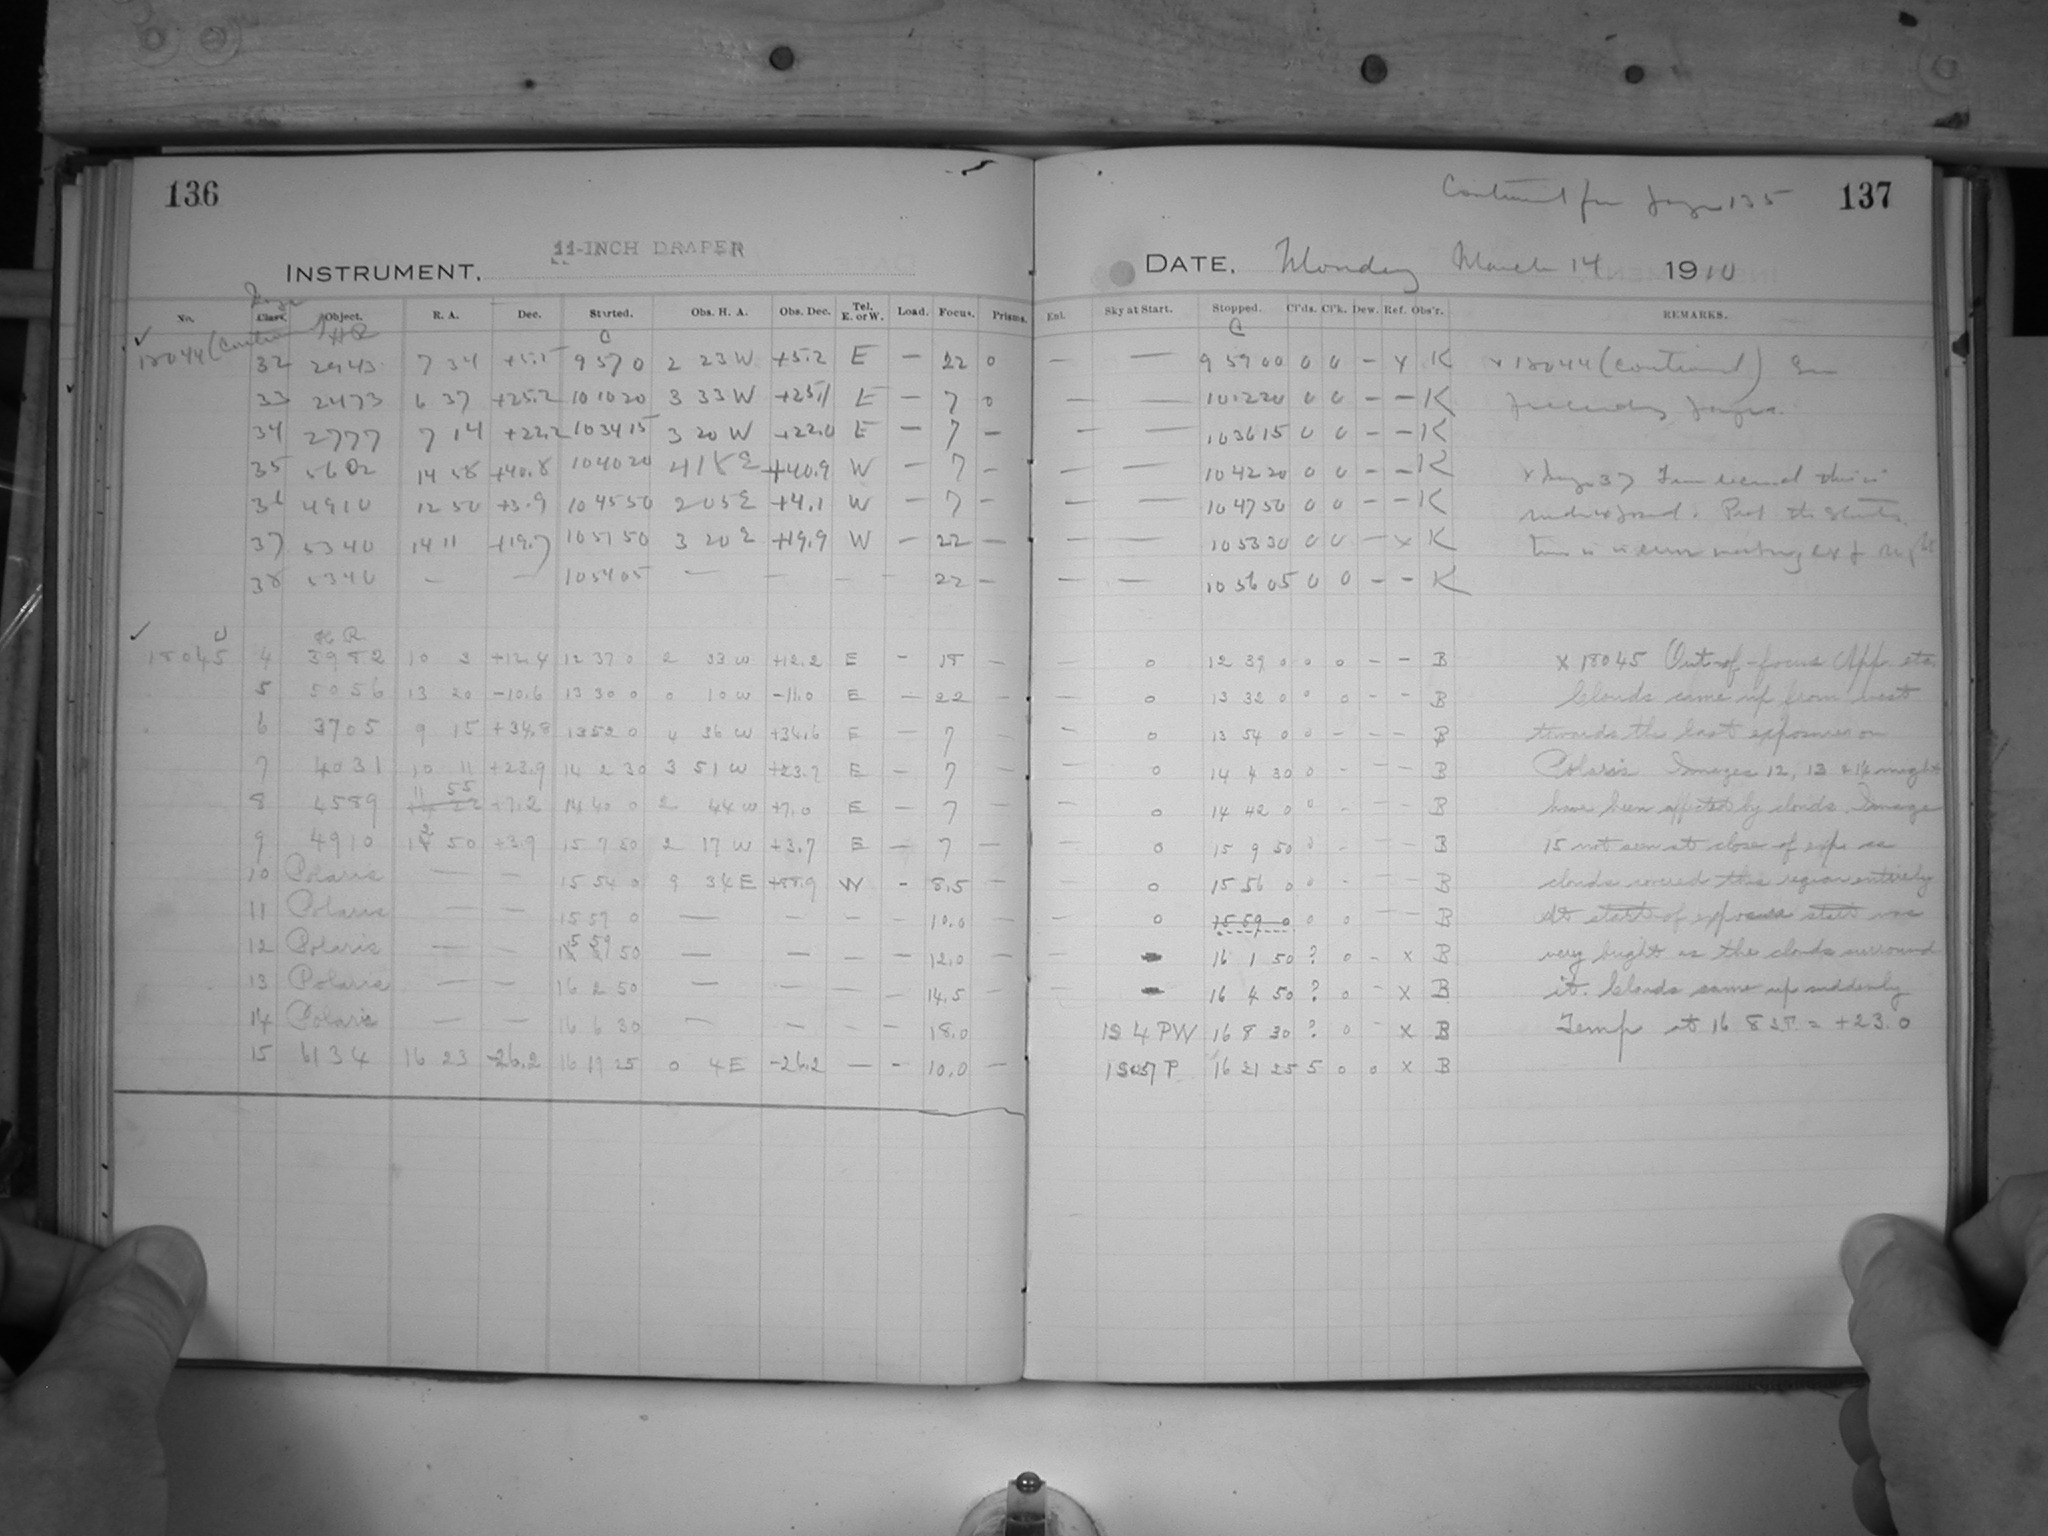 136
11-INCH DRAPER
INSTRUMENT.
No. Class. Object. R. A. Dec. Started. Obs. H. A. Obs. Dec. Tel. E. or W. Load. Focus. Prisms.
HR C
18044 32 2943 7 34 9 57 0 2 23 W +5.2 E — 22 0
33 2473 6 37 +25.2 10 10 20 3 33 W +25.1 E — 7 0
34 2777 7 14 +22.2 10 34 15 3 20 W +22.0 E — 7 —
35 5602 14 58 +40.8 10 40 20 4 18 E +40.9 W — 7 —
36 4910 12 50 +3.9 10 45 50 2 05 E +4.1 W — 7 —
37 5340 14 11 +19.7 10 51 50 3 20 E +19.9 W — 22 —
38 5340 — — 10 54 05 — — — — 22 —
HR
18045 4 3982 10 3 +12.4 12 37 0 2 33 W +12.2 E — 18 —
5 5056 13 20 -10.6 13 30 0 0 10 W -11.0 E — 22 —
6 3705 9 15 +34.8 13 52 0 4 36 W +34.6 E — 7 —
7 4031 10 11 +23.9 14 2 30 3 51 W +23.7 E — 7 —
8 4589 11 55 +7.2 14 40 0 2 44 W +7.0 E — 7
9 4910 12 50 +3.9 15 7 50 2 17 W +3.7 E — 7 —
10 Polaris — — 15 54 0 9 34 E +88.9 W - 8.5 —
11 Polaris — — 15 57 0 — — — — 10.0 —
12 Polaris — — 15 59 50 — — — — 12.0 —
13 Polaris — — 16 2 50 — — — — 14.5 —
14 Polaris — — 16 6 30 — — — — 18.0
15 6134 16 23 -26.2 16 19 25 0 4 E -26.2 — - 10.0 —
Continued from page 135 137
DATE. Monday March 14 1910
Enl. Sky at Start. Stopped. Cl'ds. Cl'k. Dew. Ref. Obs'r. REMARKS.
C
— — 9 59 00 0 0 — x K x 18044 (continued) See
— — 10 12 20 0 0 — — K preceding page.
— — 10 36 15 0 0 — — K
— — 10 42 20 0 0 — — K x Image 37
— — 10 47 50 0 0 — — K
— — 10 53 30 0 0 — x K
— — 10 56 05 0 0 — — K
— 0 12 39 0 0 0 — — B x 18045 Out-of-focus App. etc.
— 0 13 32 0 0 0 — — B Clouds came up from west
— 0 13 54 0 0 - — — B towards the last exposures on
— 0 14 4 30 0 - — — B Polaris Images 12, 13 & 14 might
0 14 42 0 0 - — — B have been affected by clouds. Image
0 15 9 50 0 - — — B 15 not seen at close of exp. as
0 15 56 0 0 - — — B clouds covered this region entirely
— 0 15 59 0 0 0 — — B At start of exposure start was
— 16 1 50 ? 0 - x B very bright as the clouds surround
— 16 4 50 ? 0 - x B it. Clouds came up suddenly
4 PW 16 8 30 ? 0 x B Temp at 16 8 S.T. = +23.0
16 21 25 5 0 0 x B